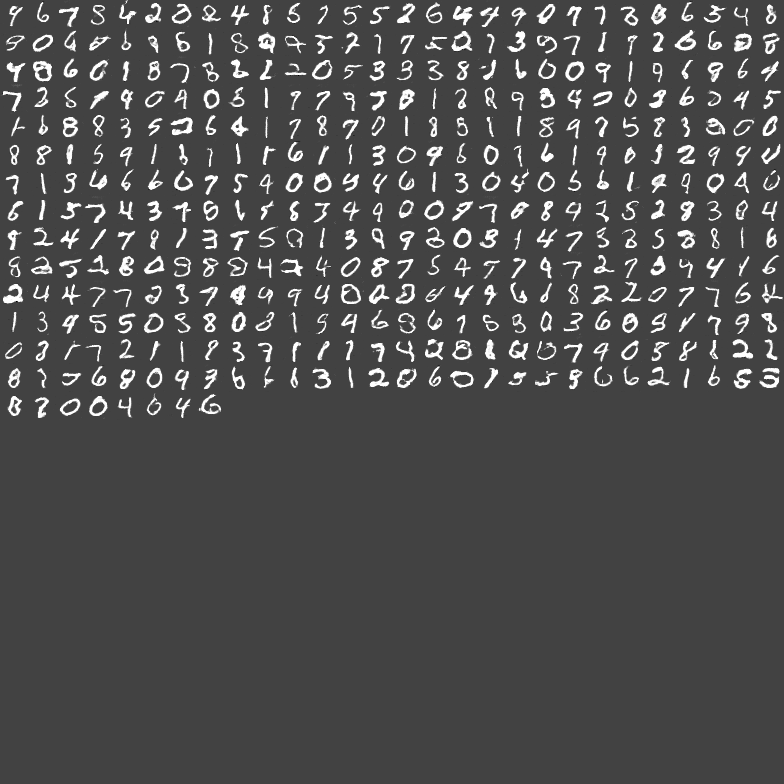 9 6 7 8 4 2 0 8 4 8 6 7 5 5 2 6 4 4 9 0 7 7 8 8 6 5 4 8
9 0 6 8 6 9 6 1 8 9 9 5 2 1 7 5 0 7 3 9 7 1 9 2 6 6 8 8
4 8 6 0 1 8 7 8 2 2 2 0 5 3 3 3 8 1 6 0 0 9 1 9 6 8 6 4
7 3 6 9 4 0 9 0 5 1 9 7 9 5 8 1 8 8 9 5 4 0 0 3 6 0 4 5
1 6 8 8 3 5 2 6 4 1 7 8 7 0 1 8 5 1 1 8 9 7 5 8 3 9 0 0
8 8 1 5 9 1 1 1 1 1 6 1 1 3 0 4 6 0 7 6 1 9 8 3 2 9 9 0
7 1 3 6 6 6 0 7 5 9 0 0 5 4 6 1 3 0 4 0 5 6 1 9 9 0 4 0
6 1 5 7 4 3 7 8 6 5 8 3 4 9 0 0 9 7 8 8 9 2 5 2 8 3 8 4
9 2 4 1 7 9 1 3 7 5 0 1 3 9 9 2 0 3 1 4 7 3 8 5 8 8 1 6
8 2 5 2 8 0 9 8 8 4 2 4 0 8 7 5 4 7 7 9 7 2 7 3 4 4 1 6
2 4 4 7 7 2 3 7 4 9 9 4 0 0 8 6 4 9 6 6 8 2 2 0 7 7 6 4
1 3 9 5 5 0 5 8 0 3 1 5 4 6 8 6 7 8 8 0 3 6 0 9 1 7 9 8
0 8 1 7 2 1 1 8 3 7 1 1 7 7 4 2 8 8 2 0 7 9 0 5 8 1 2 2
8 7 5 6 8 0 9 3 6 6 8 3 1 2 0 6 0 1 5 5 8 6 6 2 1 6 5 5
8 2 0 0 4 0 4 6